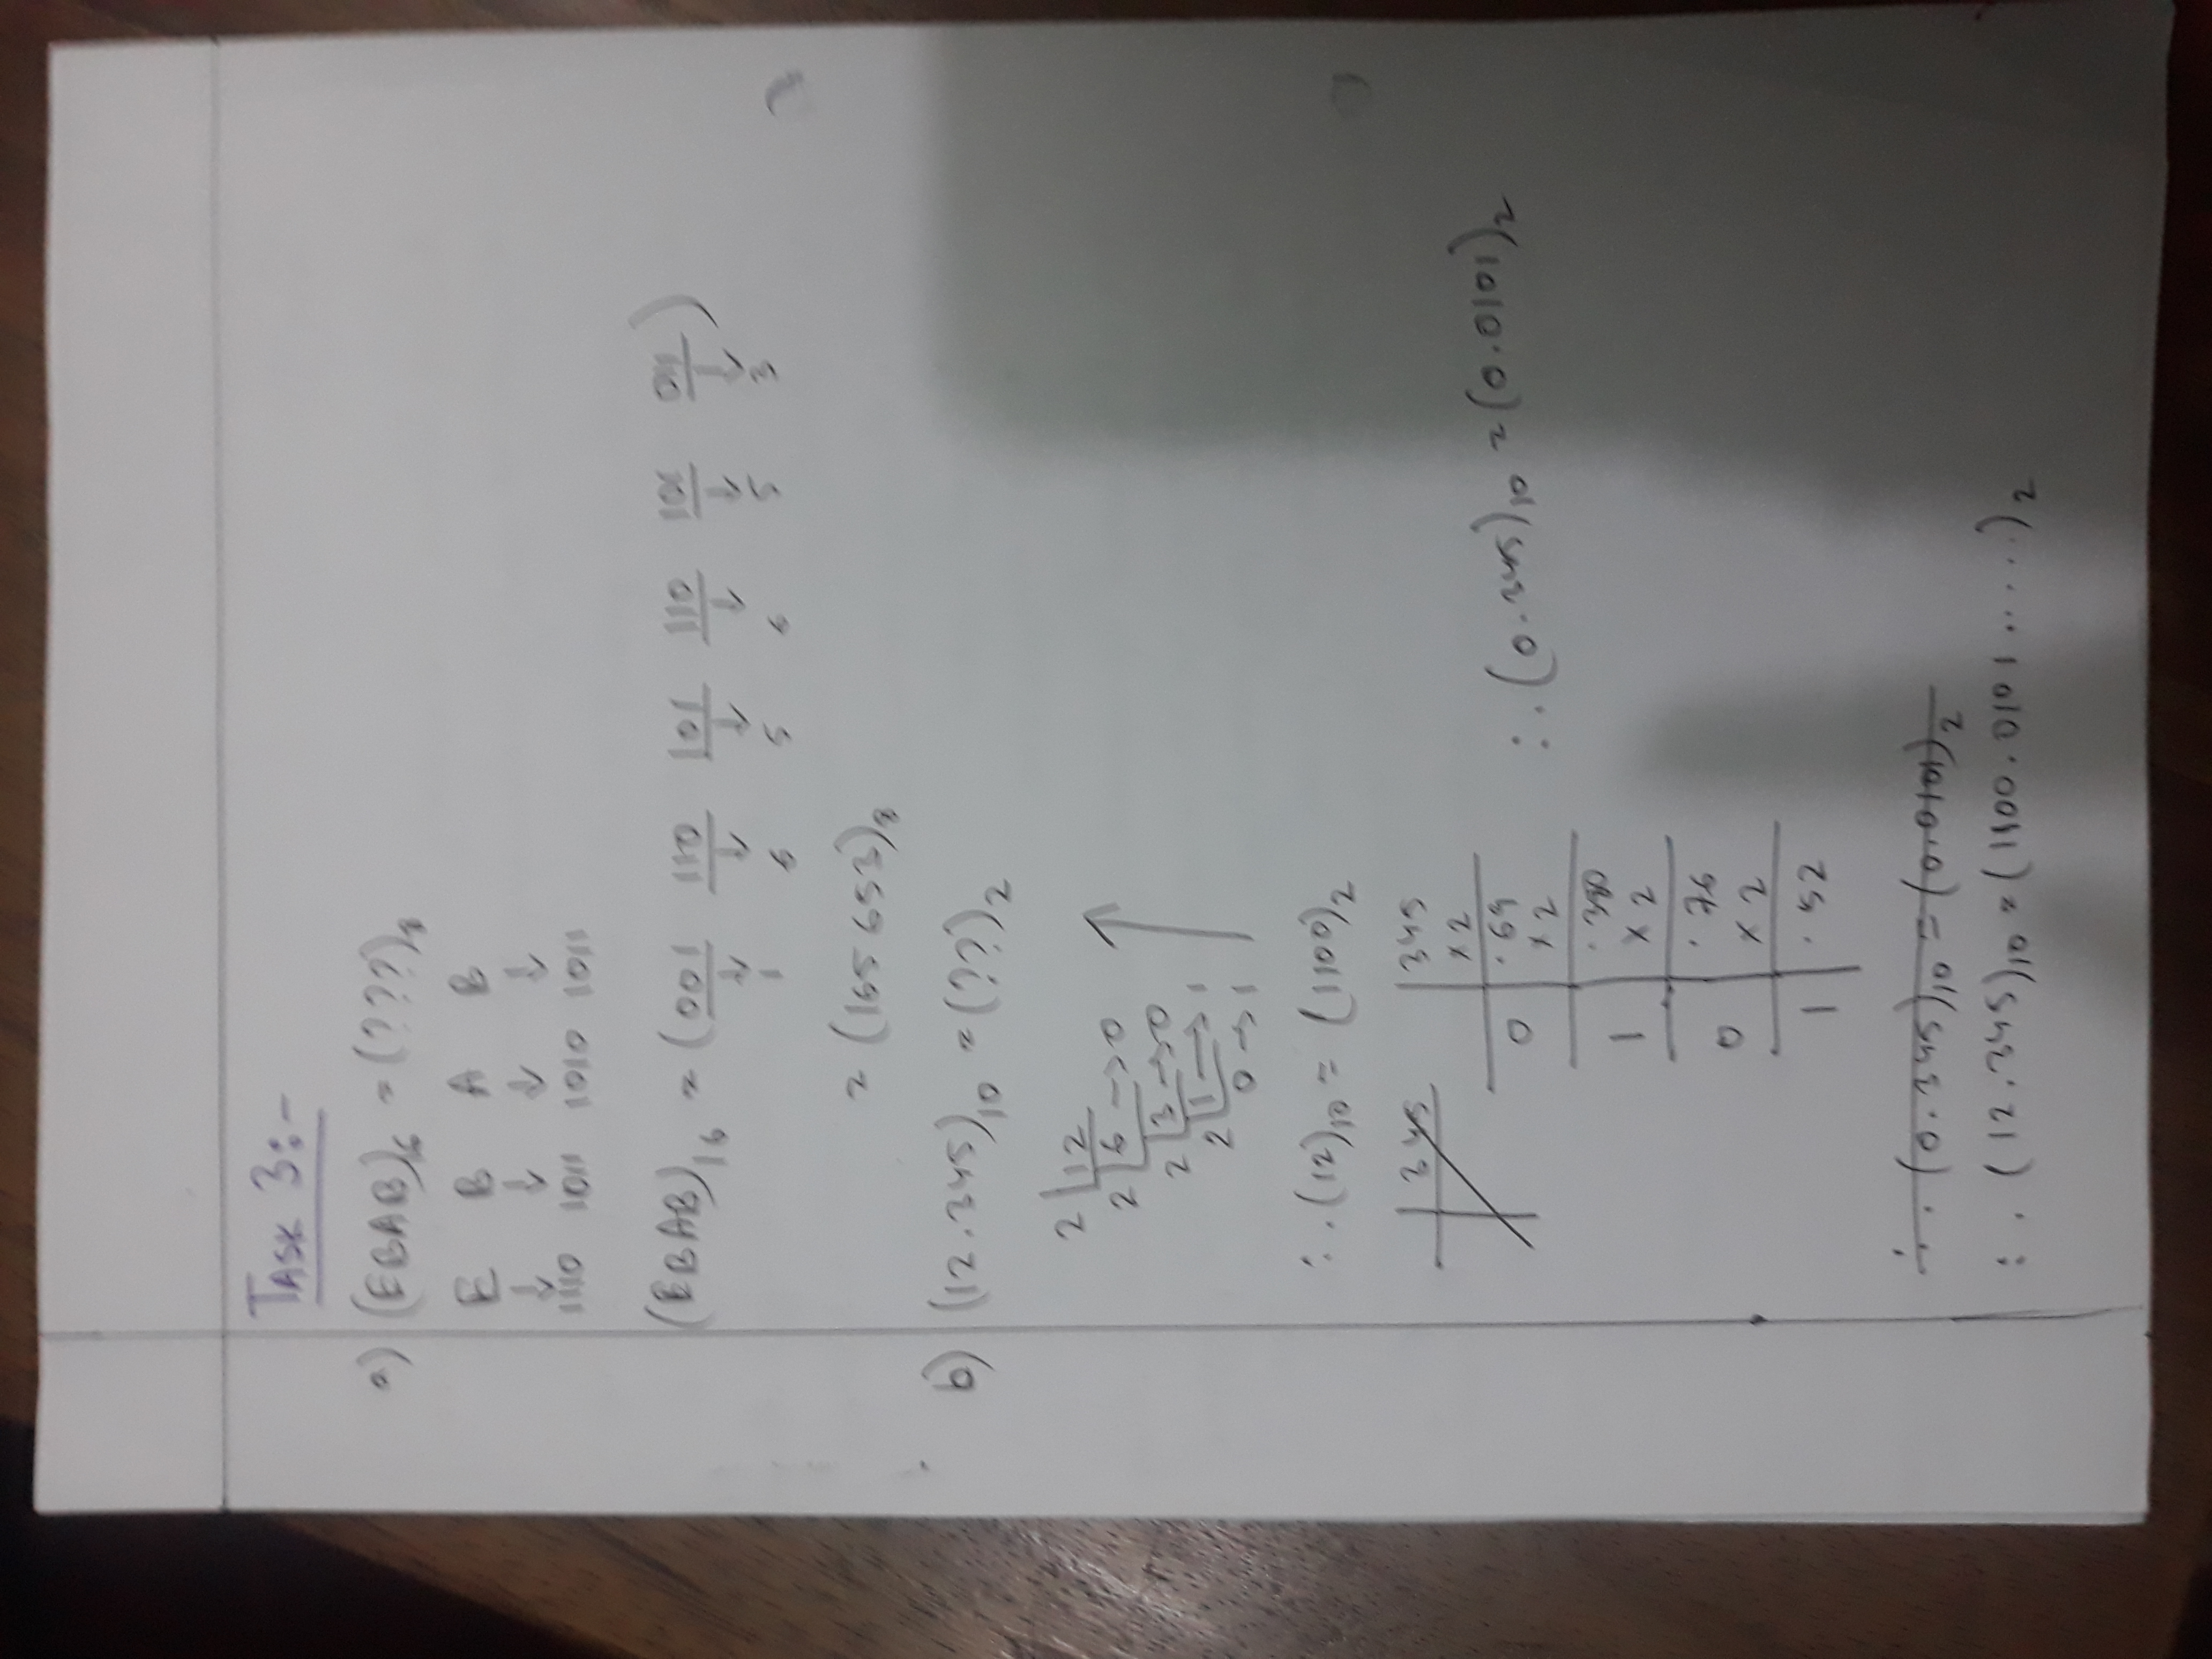 TASK 3:-
a) (EBAB)16 = (???)8
E B A B
↓ ↓ ↓ ↓
1110 1011 1010 1011
(EBAB)16 = (001 110 101 110 101 011)
↓ ↓ ↓ ↓ ↓ ↓
1 6 5 6 5 3
= (165 653)8
b) (12.345)10 = (??)2
2 12
2 6 → 0
2 3 → 0
2 1 → 1
0 → 1
∴ (12)10 = (1100)2
345
345
×2
0 .69
×2
1 .380
×2
0 .76
×2
1 .52
∴ (0.345)10 = (0.0101)2
∴ (0.345)10 = (0.0101)2
∴ (12.345)10 = (1100.0101.....)2